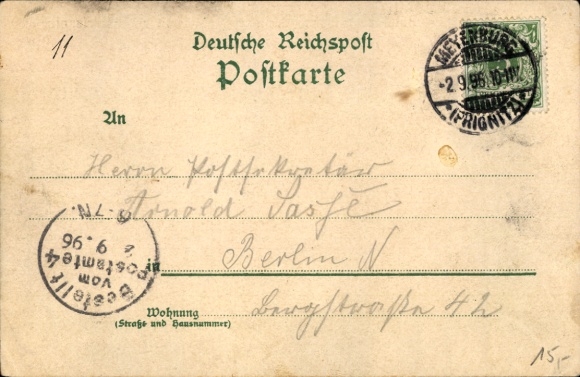 11
Deutsche Reichspost
Postkarte
MEYENBURG
2.9.96.10-11V.
*(PRIGNITZ)*
An
Herrn Postsekretär
Arnold
in Berlin N
Wohnung
(Straße und Hausnummer)
Bergstraße 42
Bestellt
vom
Postamte 4
2
9.96
6-7N.
15,-